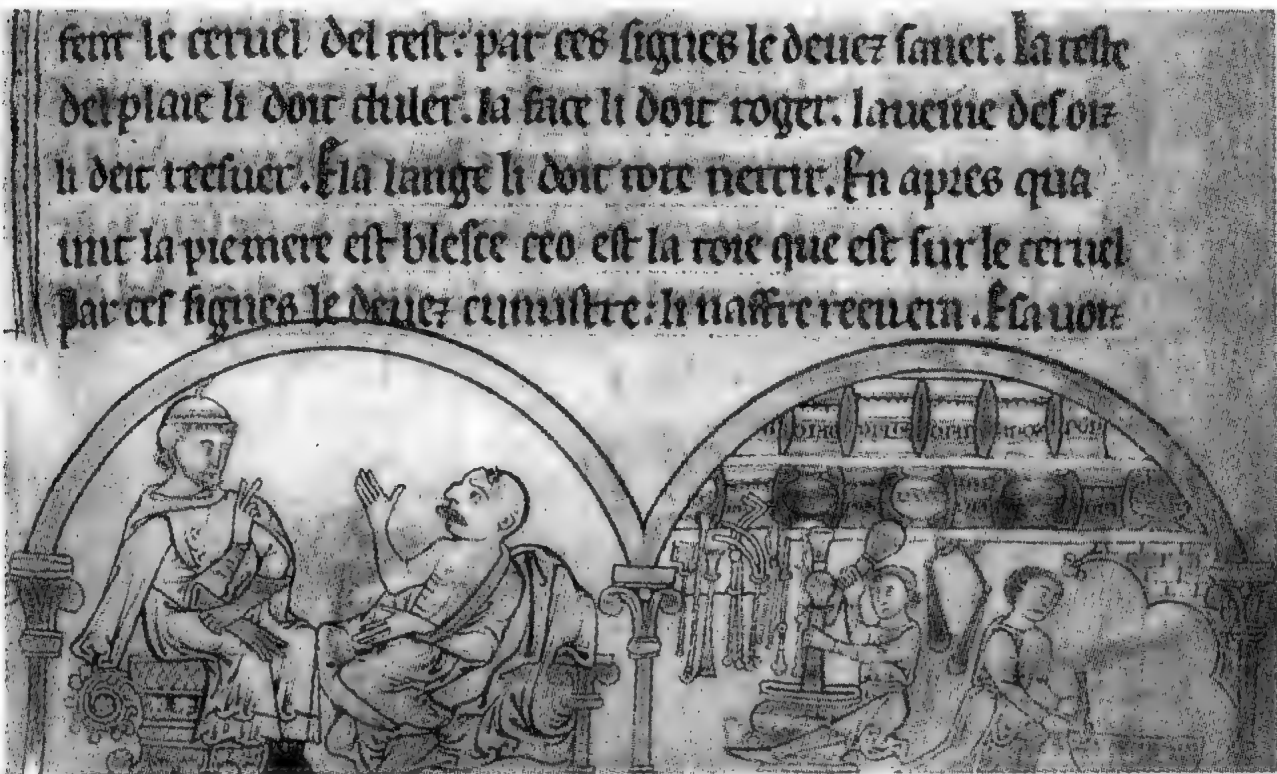 sent le ceruel del test: par ces signes le deuez sauer. La teste
del plaie li doit chuler. la face li doit roger. la ueine des oiz
li deit reesuer. E la lange li doit tote nercir. En apres qua
unt la piemere est blesce ceo est la toie que est sur le ceruel
Par ces signes le deuez cunuistre: li naffre recuern. E sa uoiz